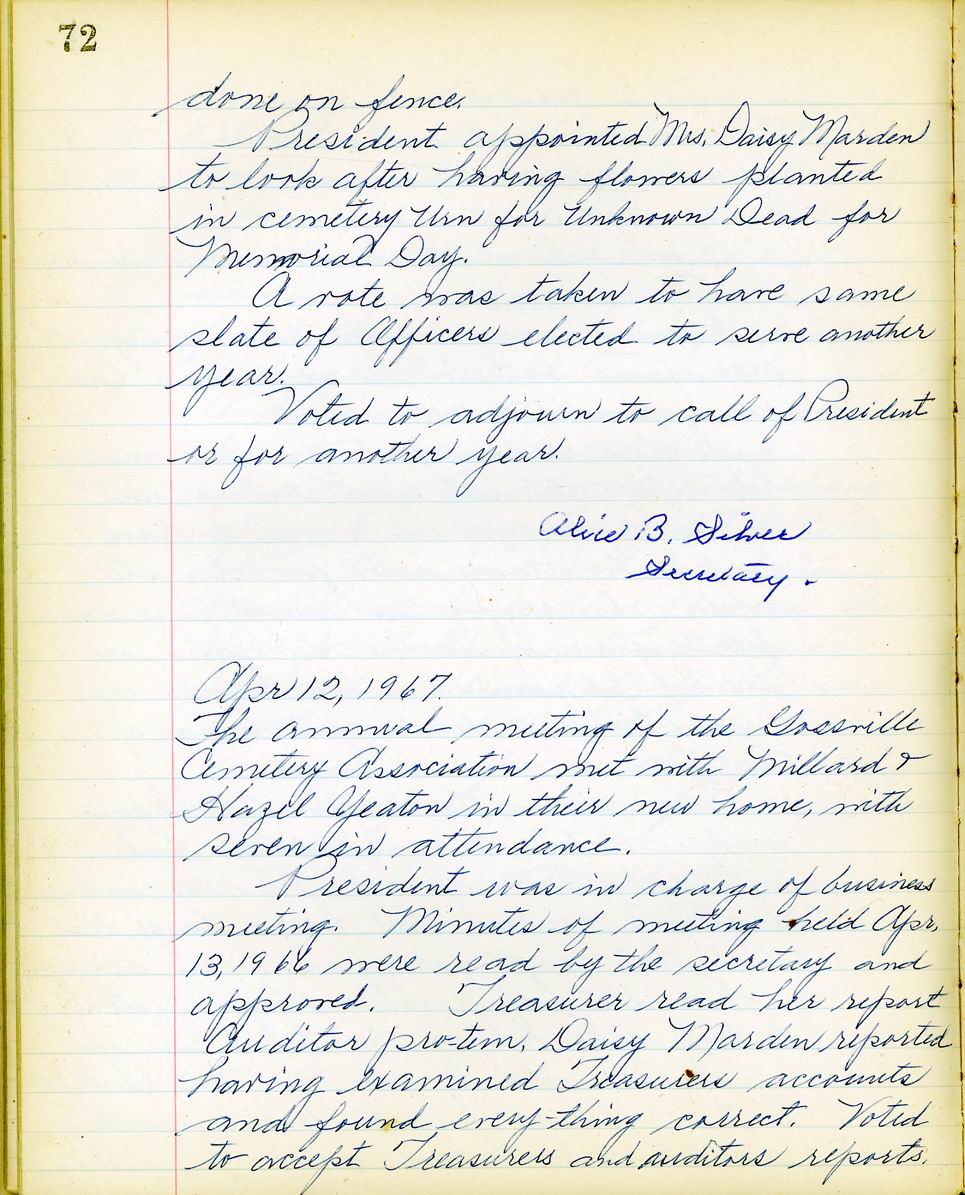 72
done on fence.
President appointed Mrs. Daisy Marden
to look after having flowers planted
in cemetery Urn for Unknown Dead for
Memorial Day.
A vote was taken to have same
slate of Officers elected to serve another
year.
Voted to adjourn to call of President
or for another year.
Alice B. Silver
Secretary.
Apr 12, 1967.
The annual meeting of the Gossville
Cemetery Association met with Millard &
Hazel Yeaton in their new home, with
seven in attendance.
President was in charge of business
meeting. Minutes of meeting held Apr.
13, 1966 were read by the secretary and
approved. Treasurer read her report
Auditor pro-tem, Daisy Marden reported
having examined Treasurers accounts
and found every-thing correct. Voted
to accept Treasurers and auditors reports.